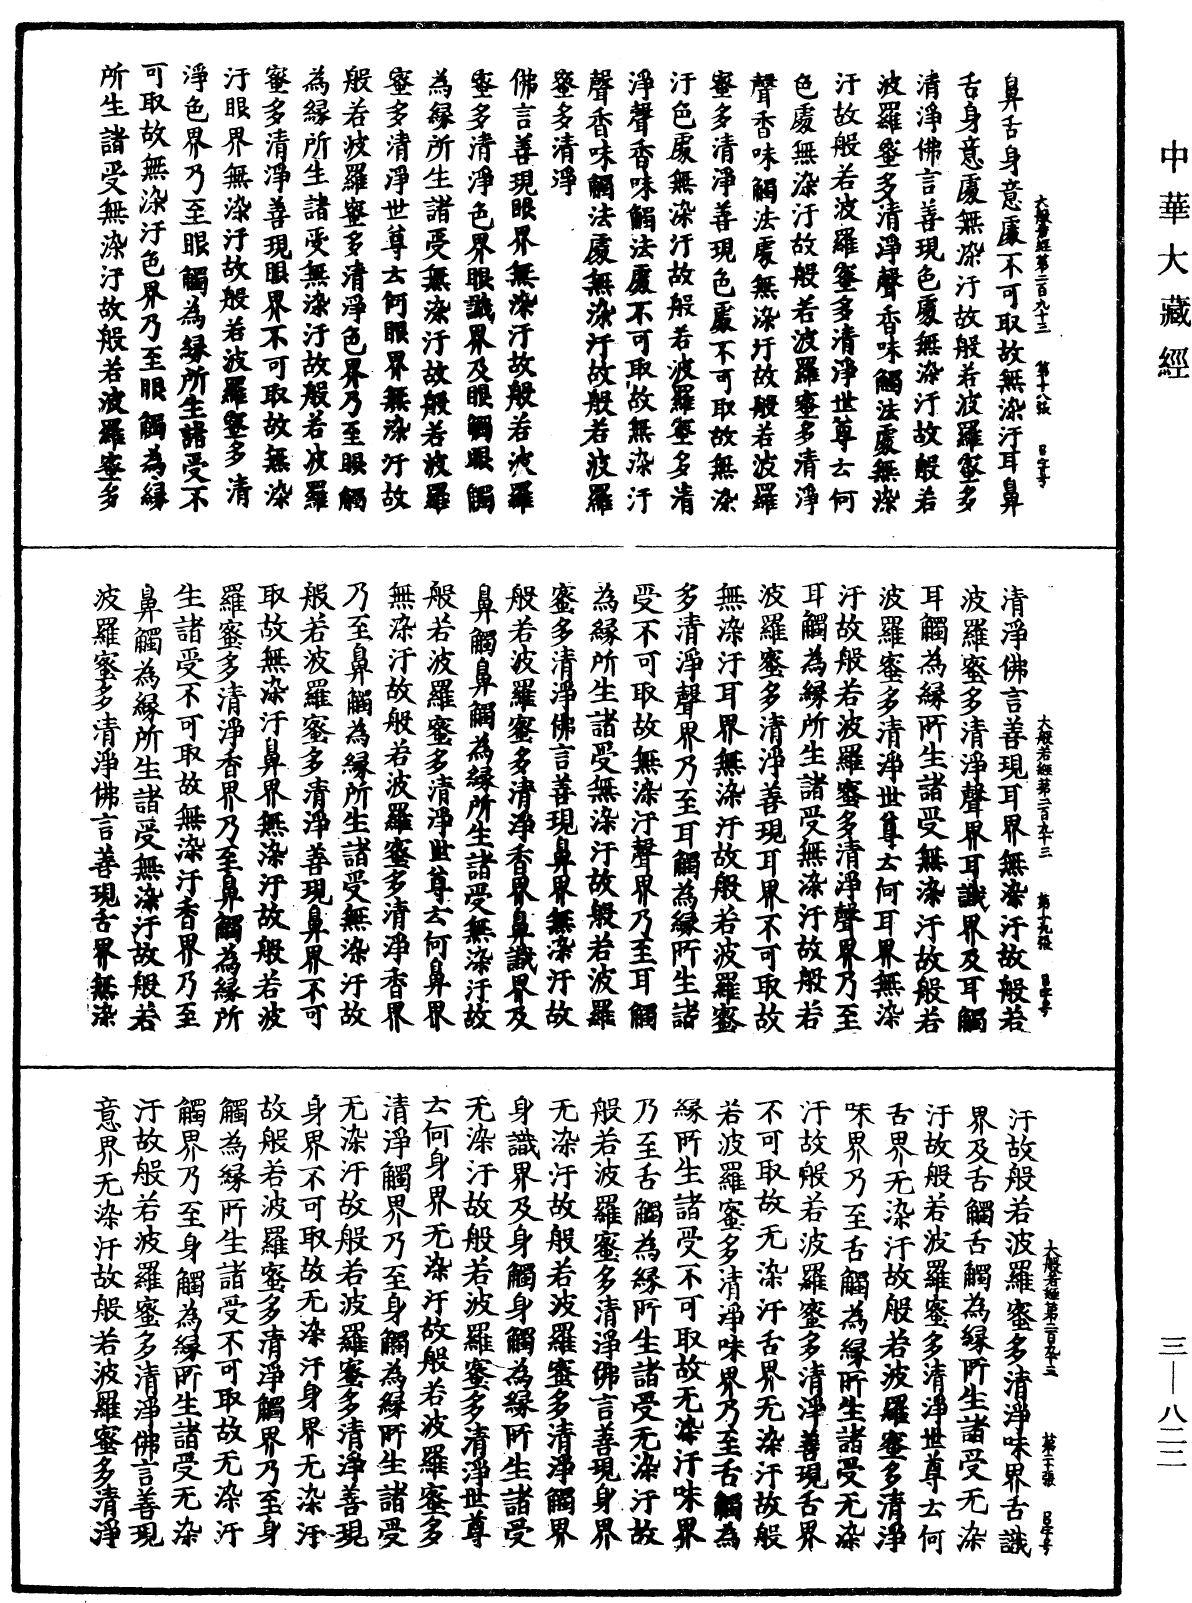 中華大藏經
大般若經第二百九十三 第十八張 日字号
鼻舌身意處不可取故無染汙耳鼻
舌身意處無染汙故般若波羅蜜多
清淨佛言善現色處無染汙故般若
波羅蜜多清淨聲香味觸法處無染
汙故般若波羅蜜多清淨世尊云何
色處無染汙故般若波羅蜜多清淨
聲香味觸法處無染汙故般若波羅
蜜多清淨善現色處不可取故無染
汙色處無染汙故般若波羅蜜多清
淨聲香味觸法處不可取故無染汙
聲香味觸法處無染汙故般若波羅
蜜多清淨
佛言善現眼界無染汙故般若波羅
蜜多清淨色界眼識界及眼觸眼觸
為緣所生諸受無染汙故般若波羅
蜜多清淨世尊云何眼界無染汙故
般若波羅蜜多清淨色界乃至眼觸
為緣所生諸受無染汙故般若波羅
蜜多清淨善現眼界不可取故無染
汙眼界無染汙故般若波羅蜜多清
淨色界乃至眼觸為緣所生諸受不
可取故無染汙色界乃至眼觸為緣
所生諸受無染汙故般若波羅蜜多
大般若經第二百九十三 第十九張 日字号
清淨佛言善現耳界無染汙故般若
波羅蜜多清淨聲界耳識界及耳觸
耳觸為緣所生諸受無染汙故般若
波羅蜜多清淨世尊云何耳界無染
汙故般若波羅蜜多清淨聲界乃至
耳觸為緣所生諸受無染汙故般若
波羅蜜多清淨善現耳界不可取故
無染汙耳界無染汙故般若波羅蜜
多清淨聲界乃至耳觸為緣所生諸
受不可取故無染汙聲界乃至耳觸
為緣所生諸受無染汙故般若波羅
蜜多清淨佛言善現鼻界無染汙故
般若波羅蜜多清淨香界鼻識界及
鼻觸鼻觸為緣所生諸受無染汙故
般若波羅蜜多清淨世尊云何鼻界
無染汙故般若波羅蜜多清淨香界
乃至鼻觸為緣所生諸受無染汙故
般若波羅蜜多清淨善現鼻界不可
取故無染汙鼻界無染汙故般若波
羅蜜多清淨香界乃至鼻觸為緣所
生諸受不可取故無染汙香界乃至
鼻觸為緣所生諸受無染汙故般若
波羅蜜多清淨佛言善現舌界無染
大般若經第二百九十三 第二十張 日字号
汙故般若波羅蜜多清淨味界舌識
界及舌觸舌觸為緣所生諸受无染
汙故般若波羅蜜多清淨世尊云何
舌界无染汙故般若波羅蜜多清淨
味界乃至舌觸為緣所生諸受无染
汙故般若波羅蜜多清淨善現舌界
不可取故无染汙舌界无染汙故般
若波羅蜜多清淨味界乃至舌觸為
緣所生諸受不可取故无染汙味界
乃至舌觸為緣所生諸受无染汙故
般若波羅蜜多清淨佛言善現身界
无染汙故般若波羅蜜多清淨觸界
身識界及身觸身觸為緣所生諸受
无染汙故般若波羅蜜多清淨世尊
云何身界无染汙故般若波羅蜜多
清淨觸界乃至身觸為緣所生諸受
无染汙故般若波羅蜜多清淨善現
身界不可取故无染汙身界无染汙
故般若波羅蜜多清淨觸界乃至身
觸為緣所生諸受不可取故无染汙
觸界乃至身觸為緣所生諸受无染
汙故般若波羅蜜多清淨佛言善現
意界无染汙故般若波羅蜜多清淨
三—八二二